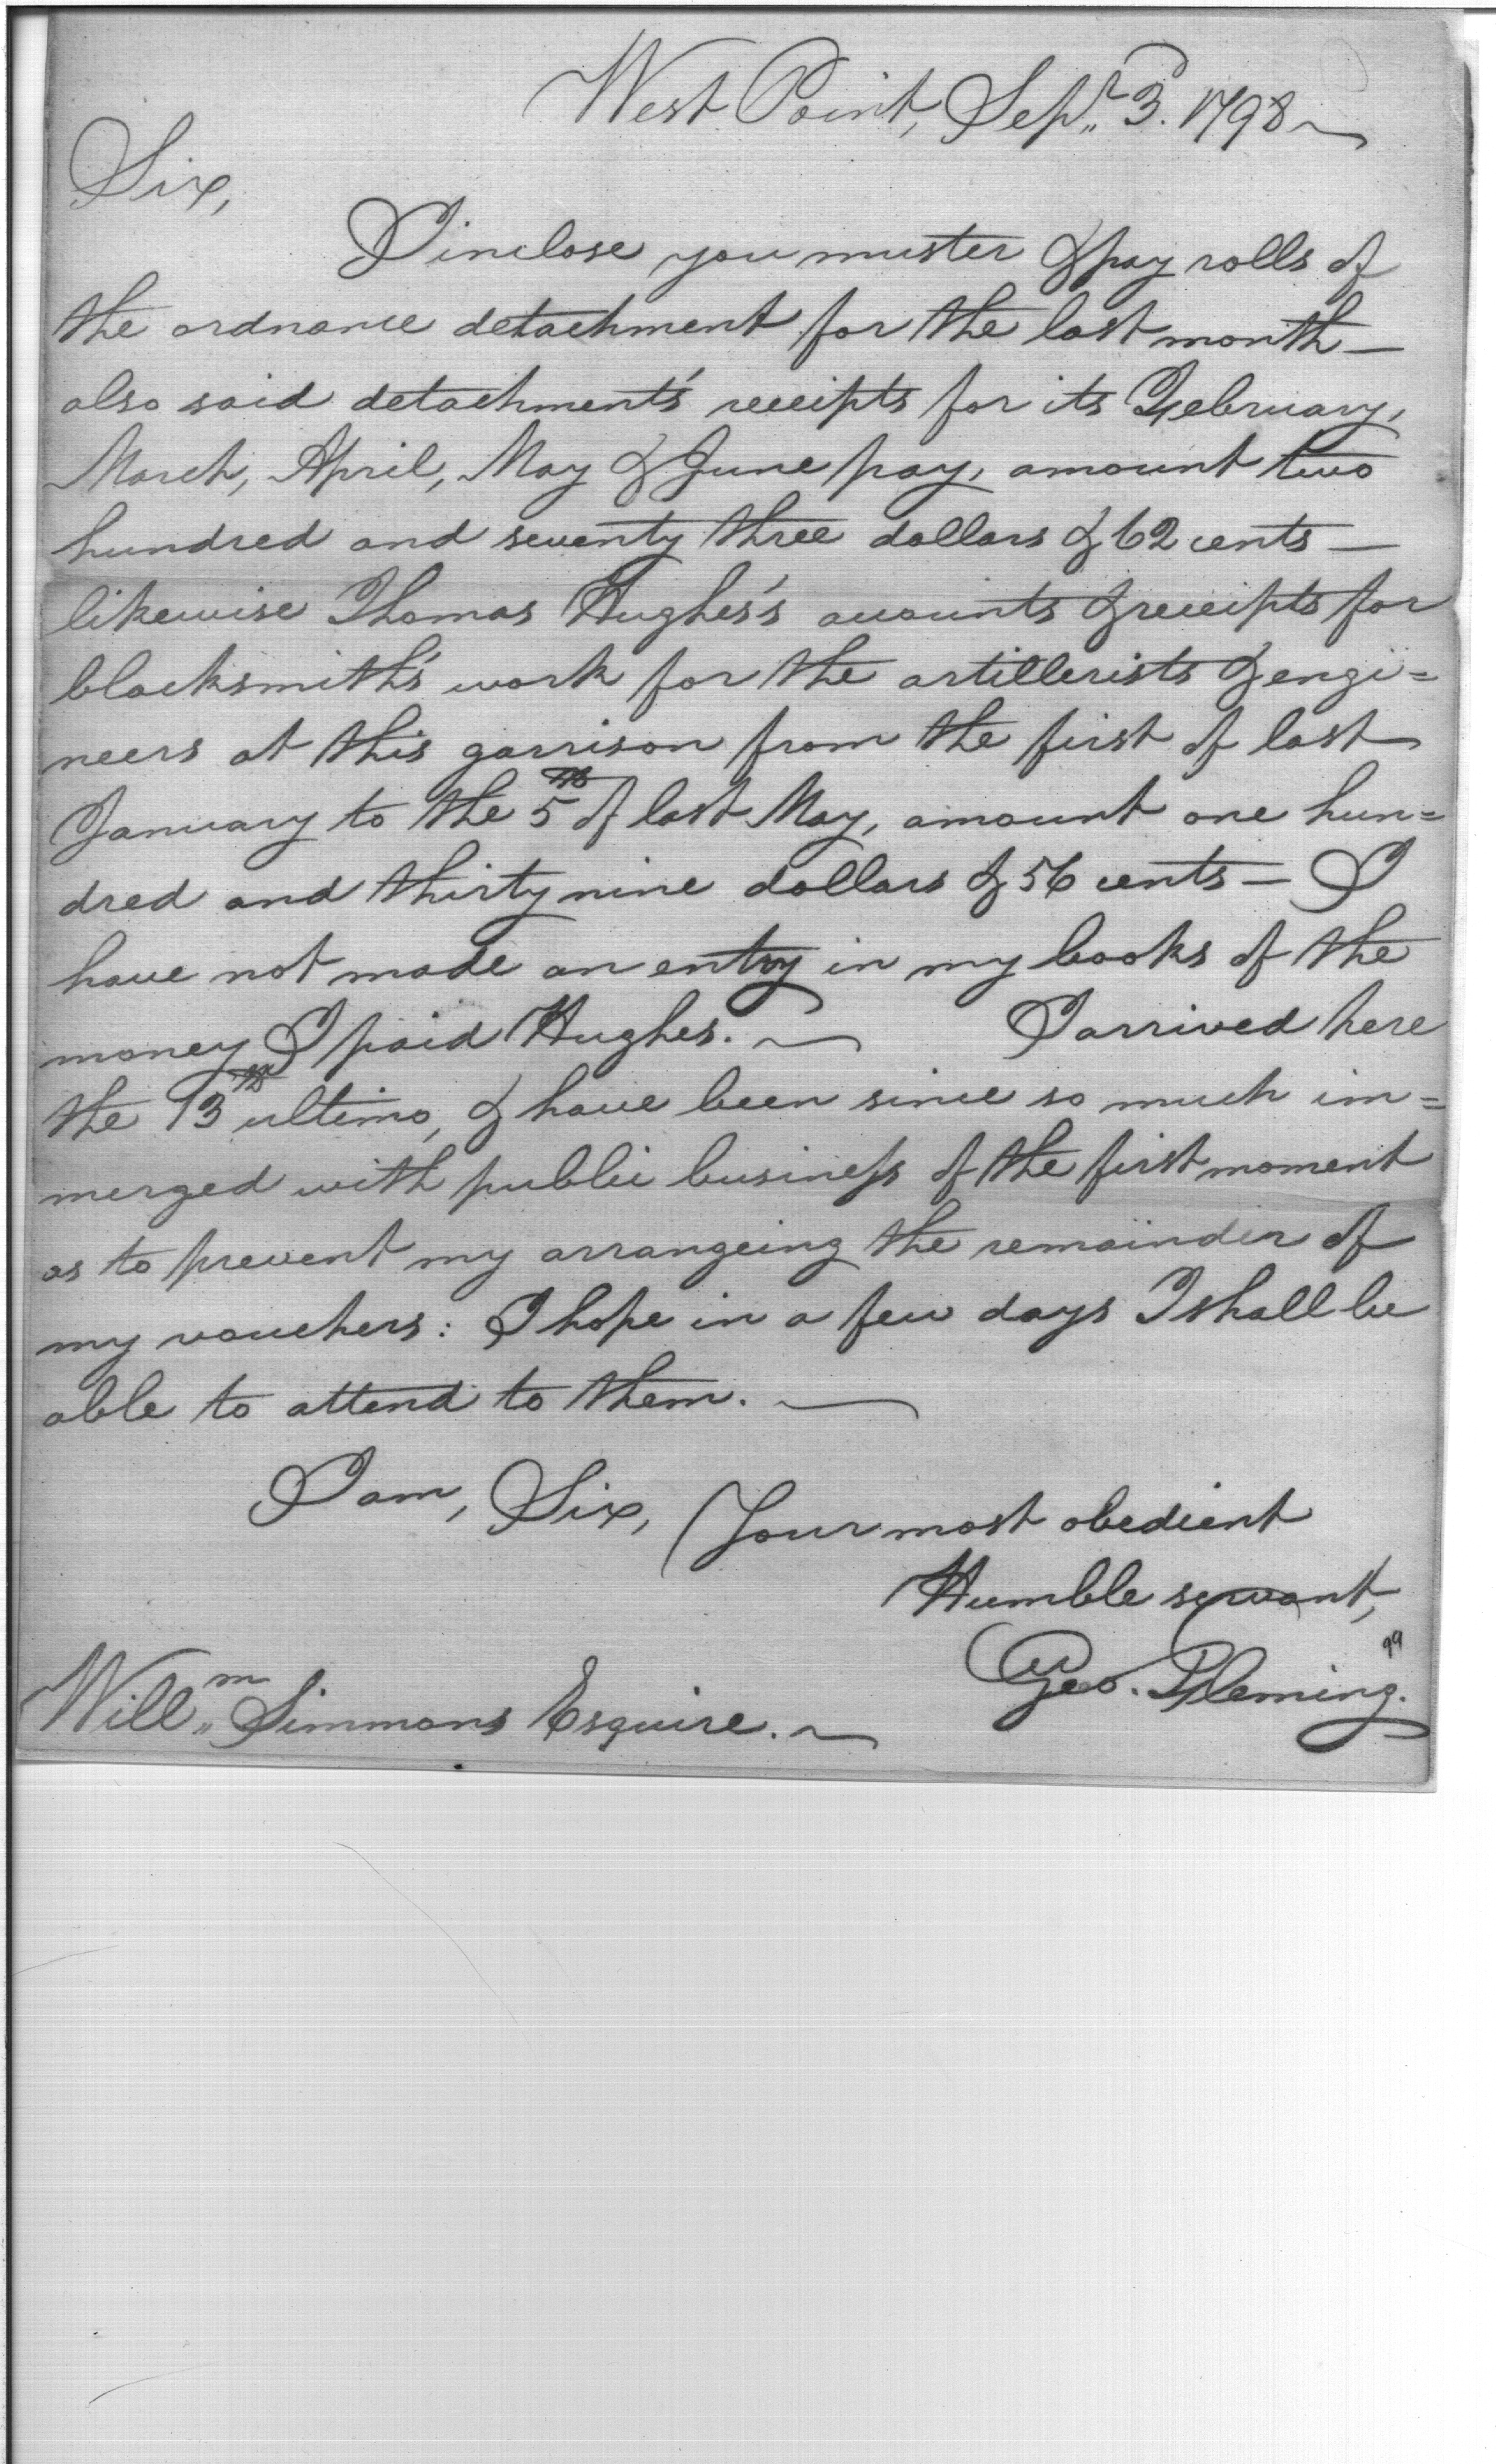 West Point, Sepr. 3. 1798
Sir,
I inclose you muster & pay rolls of
the ordnance detachment for the last month—
also said detachment's receipts for its February,
March, April, May & June pay, amount two
hundred and seventy three dollars & 62 cents—
likewise Thomas Hughes's accounts & receipts for
blacksmith's work for the artillerists & engi=
neers at this garrison from the first of last
January to the 5th of last May, amount one hun=
dred and thirty nine dollars & 56 cents— I
have not made an entry in my books of the
money I paid Hughes.— I arrived here
the 13th ultimo, & have been since so much im=
merged with public business of the first moment
as to prevent my arrangeing the remainder of
my vouchers: I hope in a few days I shall be
able to attend to them.—
I am, Sir, Your most obedient
Humble servant,
Geo. Fleming.
Willm Simmons Esquire.—